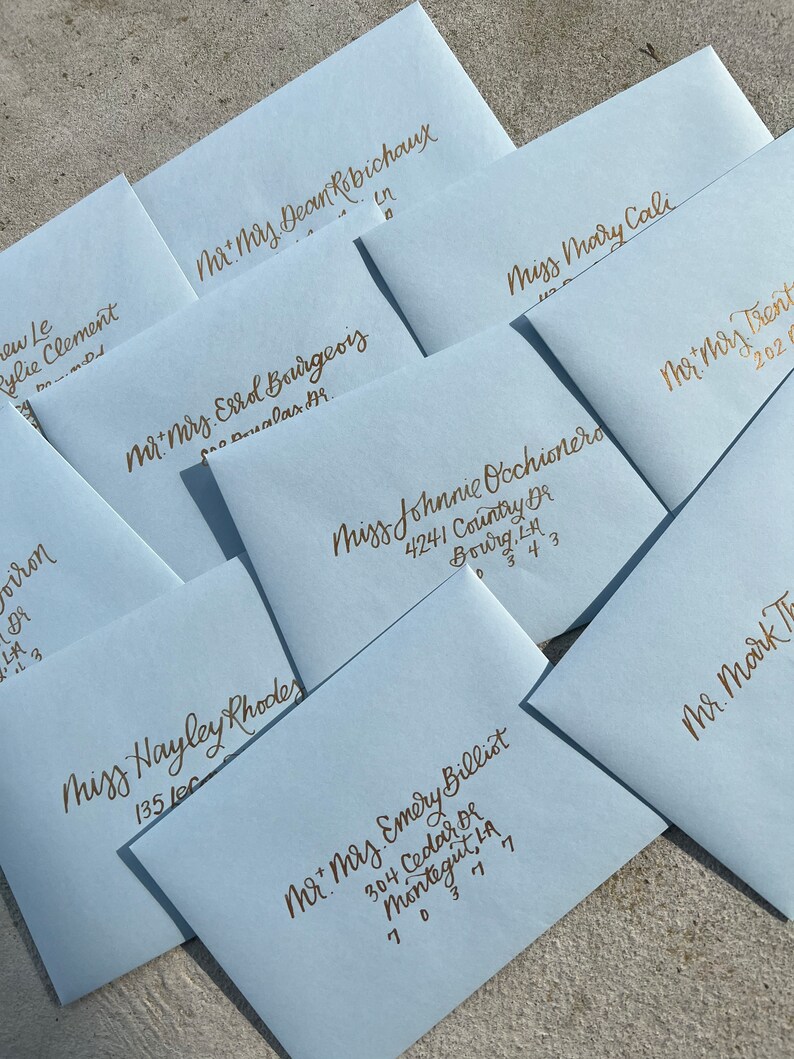 Mr + Mrs. Dean Robichaux
Ln
Miss Mary Cali
Le
Kylie Clement
Rd
Mr + Mrs. Errol Bourgeois
Douglas Dr.
Mr + Mrs Trent
202
Miss Johnnie Occhionero
4241 Country Dr
Bourg, LA
0 3 4 3
Dr
LA
4 3
Mr. Mark
Miss Hayley Rhodes
135
Mr + Mrs. Emery Billiot
304 Cedar Dr
Montegut, LA
7 0 3 7 7